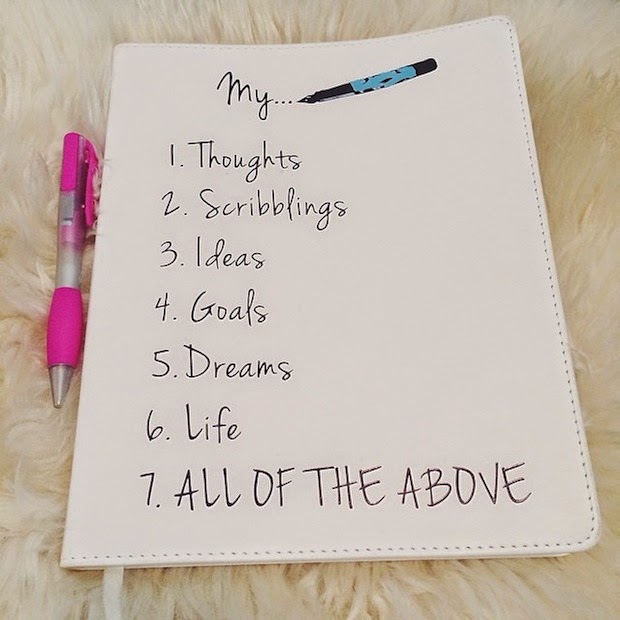 My...
1. Thoughts
2. Scribblings
3. Ideas
4. Goals
5. Dreams
6. Life
7. ALL OF THE ABOVE